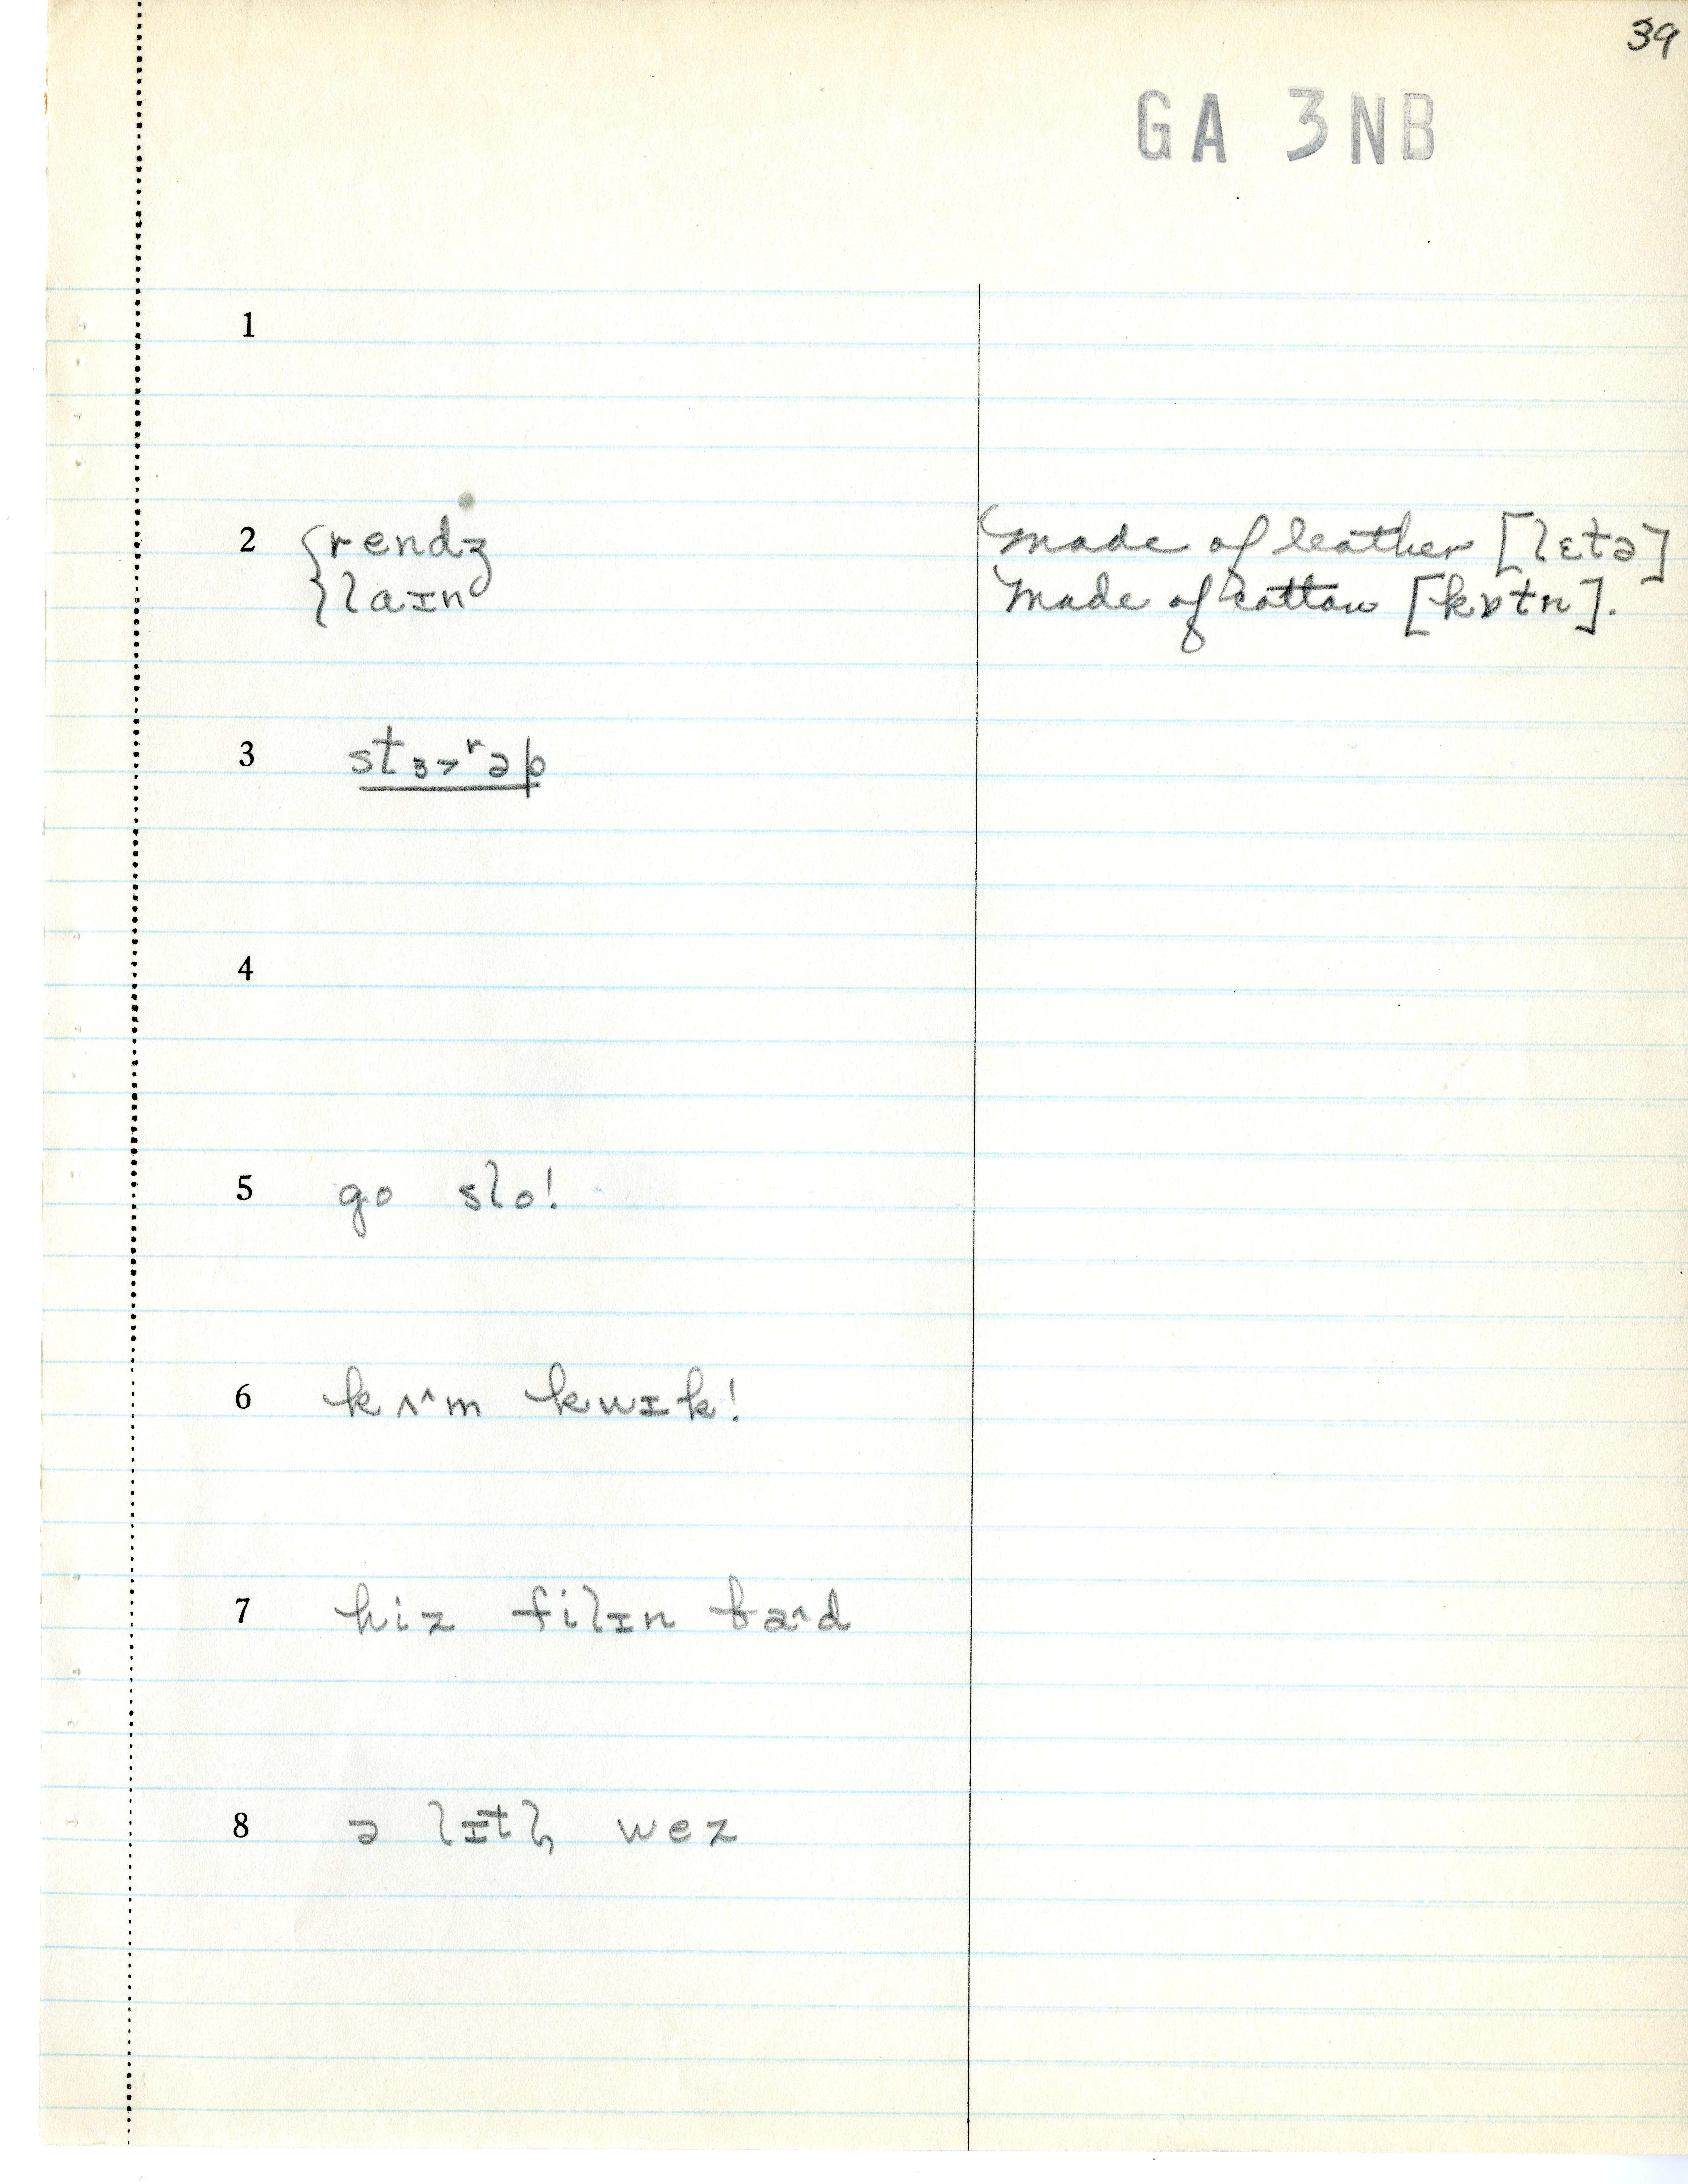 39
GA 3NB
1
2 rendz made of leather [lɛtə]
laɪn made of cotton [kɒtn].
3 stɜ˃ʳəp
4
5 go slo!
6 kʌ˄m kwɪk!
7 hiz filɪn ba˄d
8 ə lɪtl̩ wez